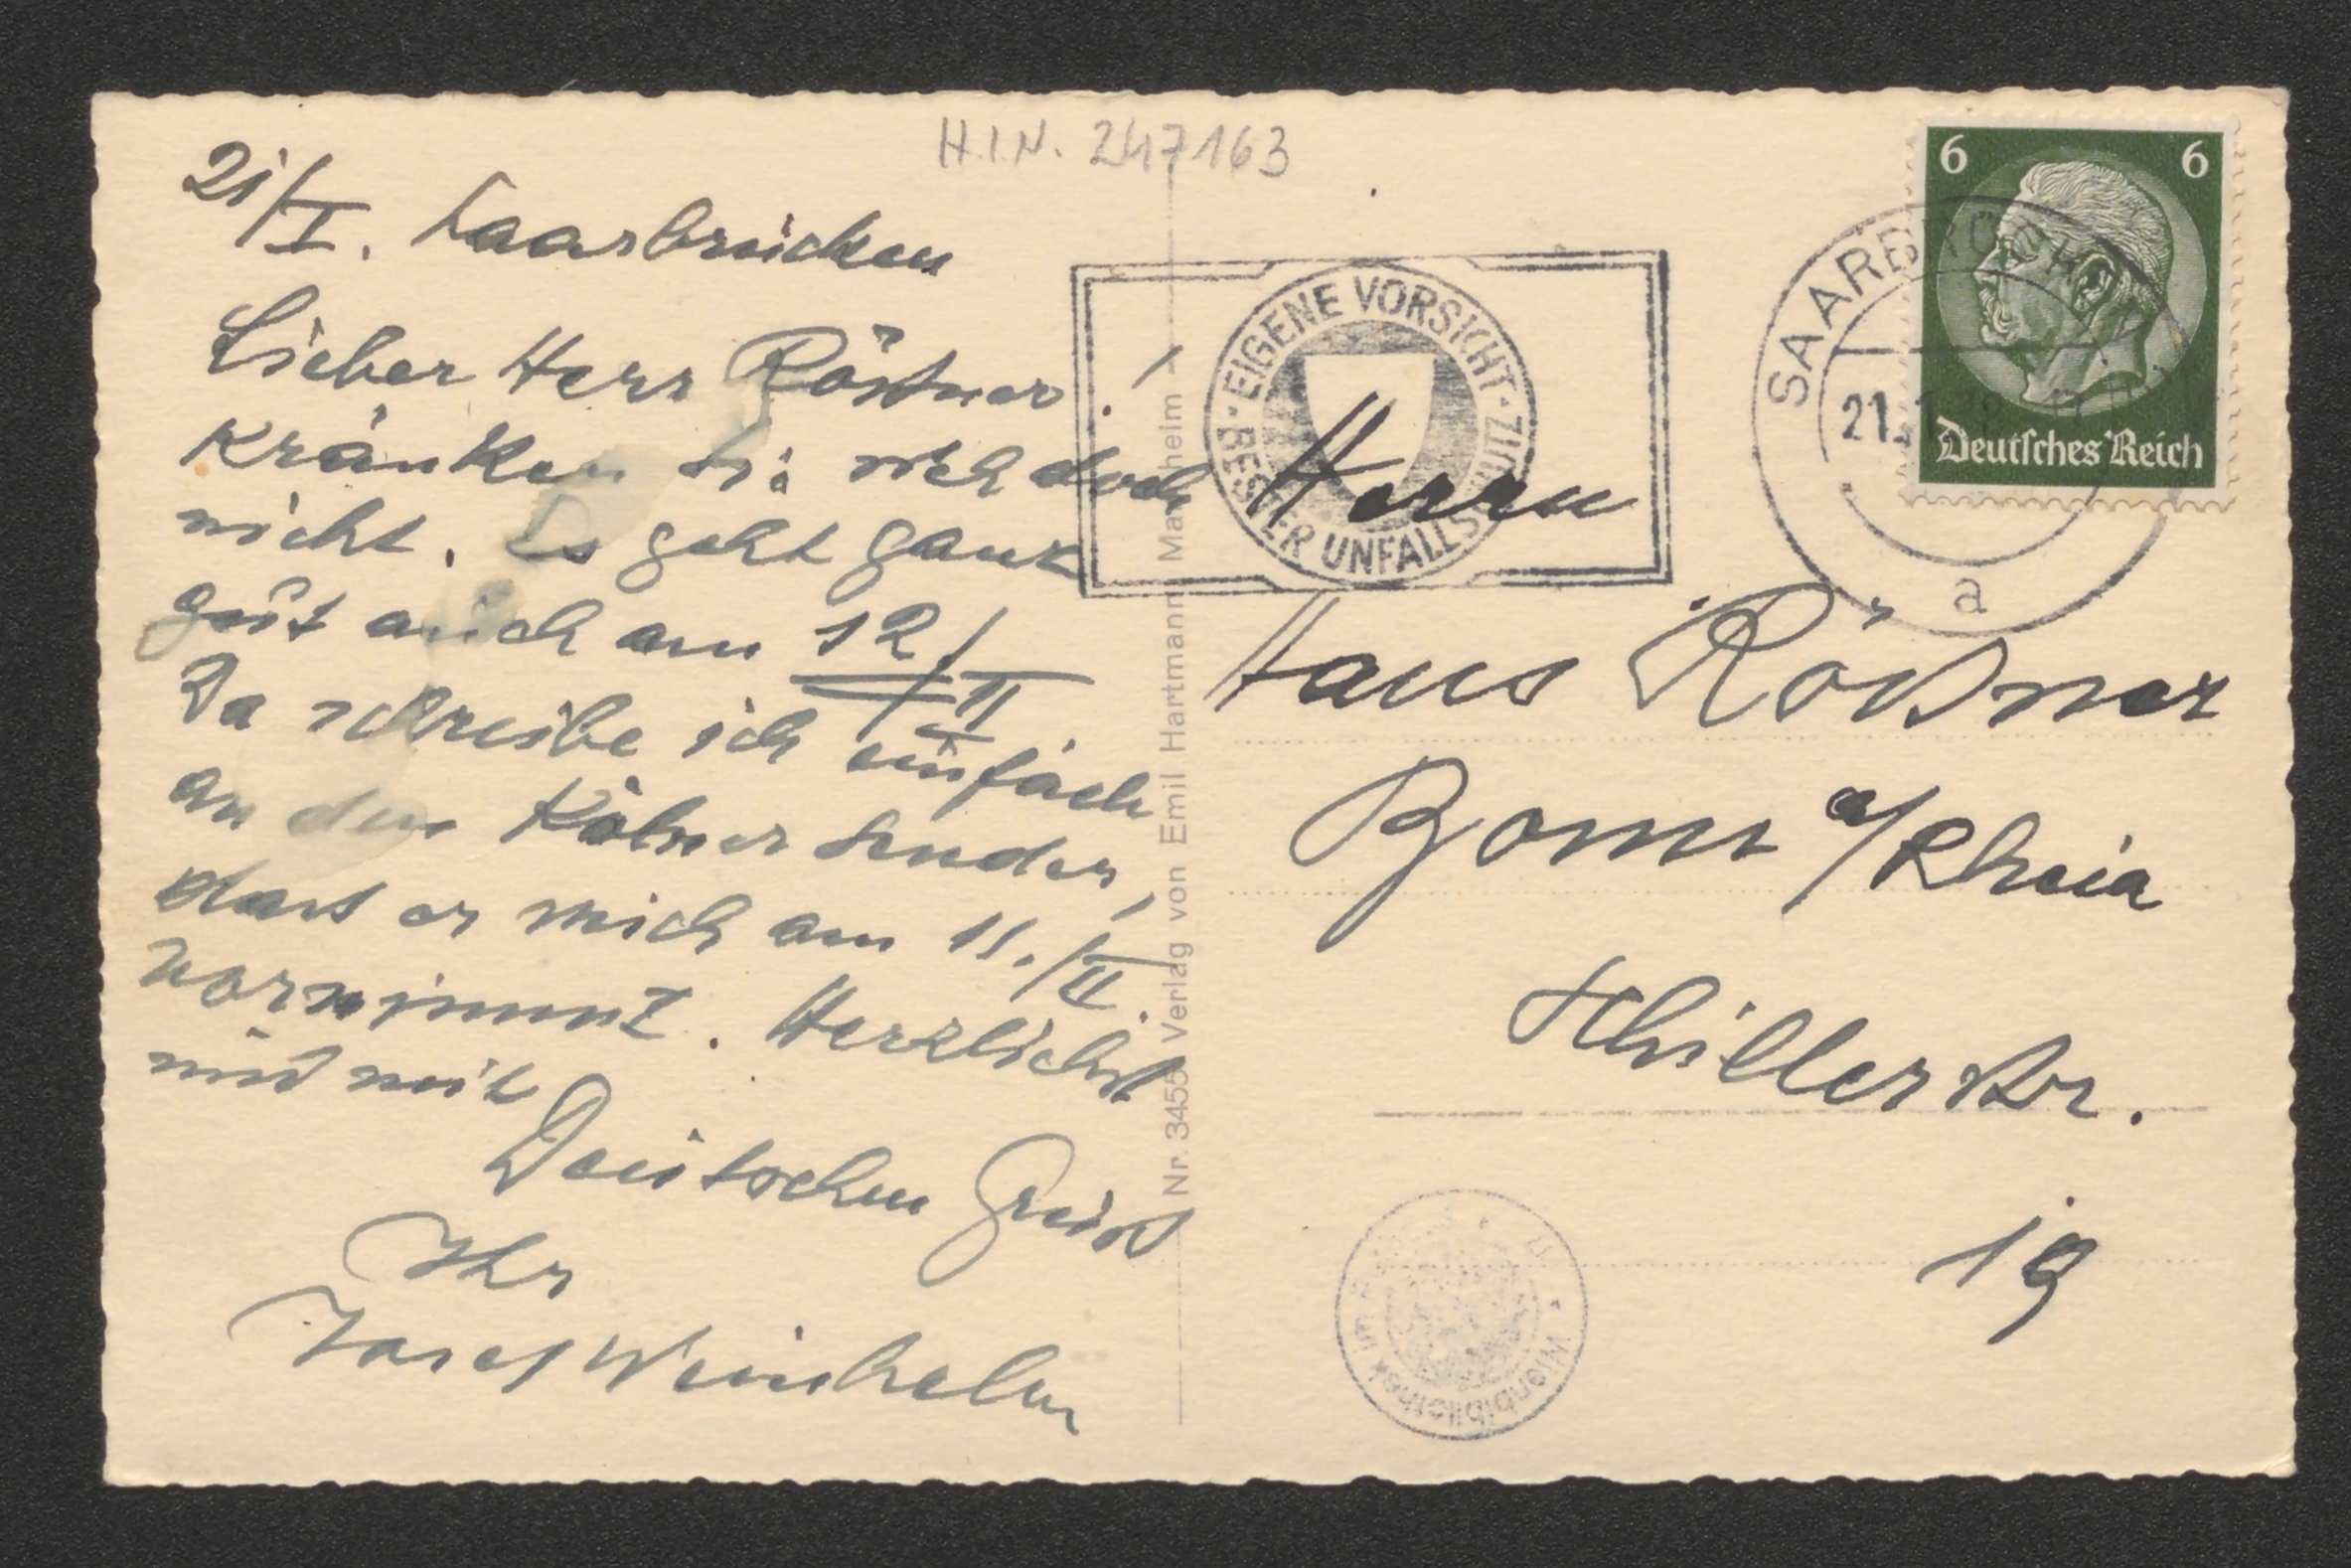 H.I.N. 247163
21/I. Saarbrücken
Lieber Herr Rössner!
Kränken Sie sich doch
nicht. Es geht ganz
gut auch am 12/II
Da schreibe ich einfach
an den Kölner Sender,
dass er mich am 11./II.
vornimmt. Herzlichst
und mit
Deutschem Gruß
Ihr
Josef Weinheber
Nr. 3455 Verlag von Emil Hartmann Mannheim
EIGENE VORSICHT · BESTER UNFALLSCHUTZ
SAARBRÜCKEN
21.1
a
6 6
Deutsches Reich
Herrn
Hans Rößner
Bonn a/Rhein
Schillerstr.
19
Wienbibliothek